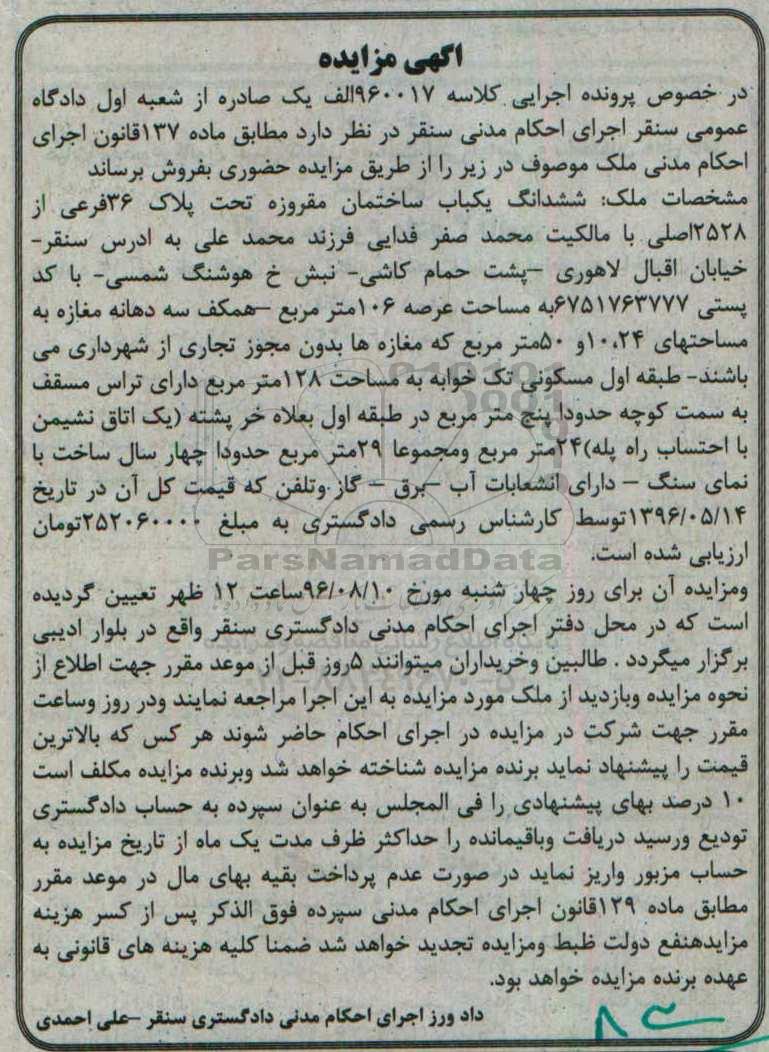 اگهی مزایده
در خصوص پرونده اجرایی کلاسه ۹۶۰۰۱۷الف یک صادره از شعبه اول دادگاه
عمومی سنقر اجرای احکام مدنی سنقر در نظر دارد مطابق ماده ۱۳۷قانون اجرای
احکام مدنی ملک موصوف در زیر را از طریق مزایده حضوری بفروش برساند
مشخصات ملک: ششدانگ یکباب ساختمان مقروزه تحت پلاک ۳۶فرعی از
۲۵۲۸اصلی با مالکیت محمد صفر فدایی فرزند محمد علی به ادرس سنقر-
خیابان اقبال لاهوری –پشت حمام کاشی- نبش خ هوشنگ شمسی- با کد
پستی ۶۷۵۱۷۶۳۷۷۷به مساحت عرصه ۱۰۶متر مربع –همکف سه دهانه مغازه به
مساحتهای ۱۰،۲۴و ۵۰متر مربع که مغازه ها بدون مجوز تجاری از شهرداری می
باشند- طبقه اول مسکونی تک خوابه به مساحت ۱۲۸متر مربع دارای تراس مسقف
به سمت کوچه حدودا پنج متر مربع در طبقه اول بعلاه خر پشته (یک اتاق نشیمن
با احتساب راه پله)۲۴متر مربع ومجموعا ۲۹متر مربع حدودا چهار سال ساخت با
نمای سنگ – دارای انشعابات آب –برق – گاز وتلفن که قیمت کل آن در تاریخ
۱۳۹۶/۰۵/۱۴توسط کارشناس رسمی دادگستری به مبلغ ۲۵۲۰۶۰۰۰۰تومان
ارزیابی شده است.
ParsNamadData
ومزایده آن برای روز چهار شنبه مورخ ۹۶/۰۸/۱۰ساعت ۱۲ ظهر تعیین گردیده
است که در محل دفتر اجرای احکام مدنی دادگستری سنقر واقع در بلوار ادیبی
برگزار میگردد . طالبین وخریداران میتوانند ۵روز قبل از موعد مقرر جهت اطلاع از
نحوه مزایده وبازدید از ملک مورد مزایده به این اجرا مراجعه نمایند ودر روز وساعت
مقرر جهت شرکت در مزایده در اجرای احکام حاضر شوند هر کس که بالاترین
قیمت را پیشنهاد نماید برنده مزایده شناخته خواهد شد وبرنده مزایده مکلف است
۱۰ درصد بهای پیشنهادی را فی المجلس به عنوان سپرده به حساب دادگستری
تودیع ورسید دریافت وباقیمانده را حداکثر ظرف مدت یک ماه از تاریخ مزایده به
حساب مزبور واریز نماید در صورت عدم پرداخت بقیه بهای مال در موعد مقرر
مطابق ماده ۱۲۹قانون اجرای احکام مدنی سپرده فوق الذکر پس از کسر هزینه
مزایدهنفع دولت ظبط ومزایده تجدید خواهد شد ضمنا کلیه هزینه های قانونی به
عهده برنده مزایده خواهد بود.
داد ورز اجرای احکام مدنی دادگستری سنقر –علی احمدی